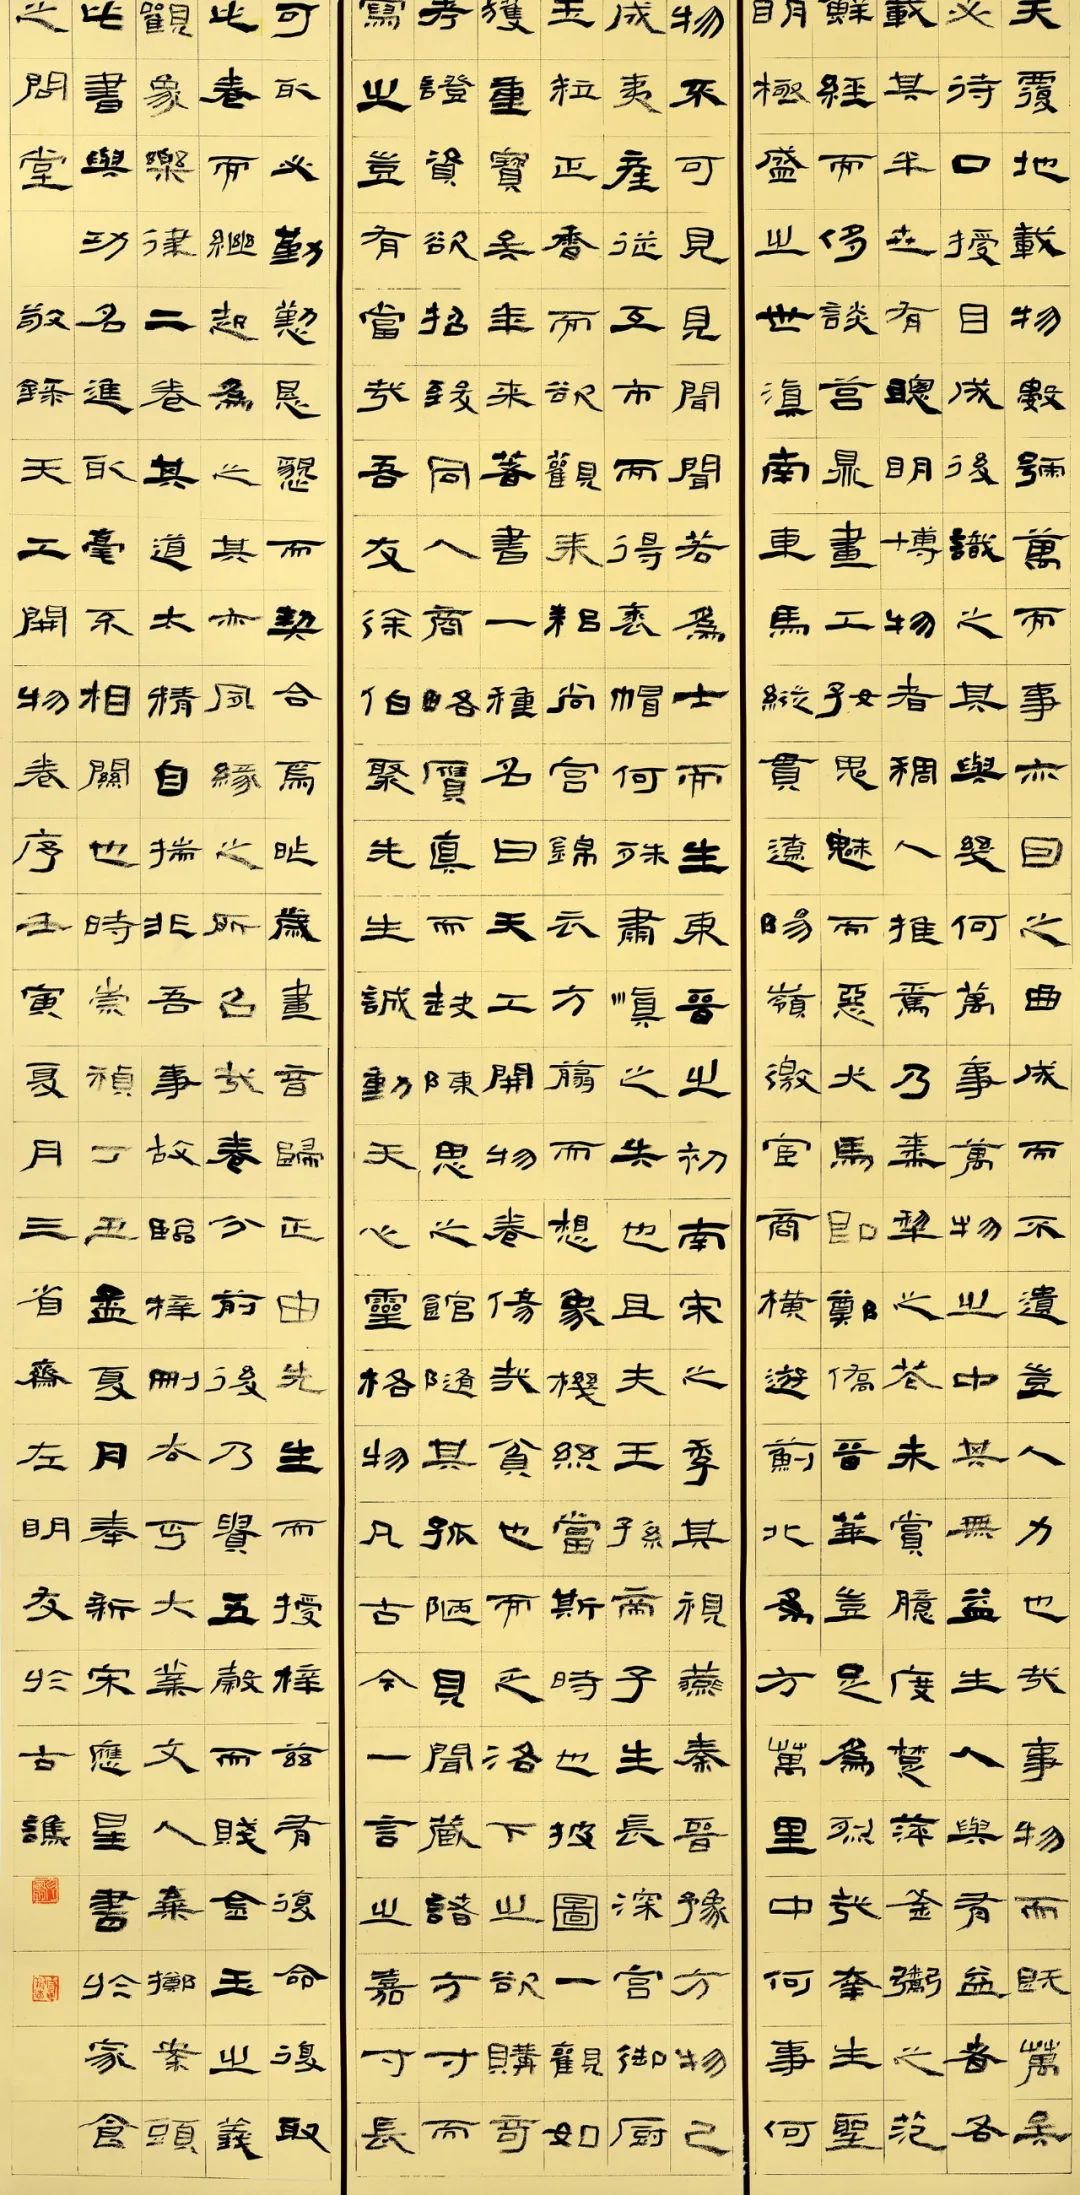 天覆地載物數號萬而事亦因之曲成而不遺豈人力也哉事物而既萬矣
必待口授目成後識之其與幾何萬事萬物之中其無益生人與有益者各
載其半世有聰明博物者稠人推焉乃棗梨之花未賞臆度楚萍釜鬵之范
鮮經而侈談莒鼎畫工好鬼魅而惡犬馬即鄭僑晉華豈足為烈哉幸生聖
明極盛之世滇南車馬縱貫遼陽嶺徼宦商橫遊薊北為方萬里中何事何
物不可見見聞聞若為士而生東晉之初南宋之季其視燕秦晉豫方物已
成夷產從互市而得裘帽何殊肅慎之矢也且夫王孫帝子生長深宮御廚
玉粒正香而欲觀耒耜尚宮錦衣方剪而想象機絲當斯時也披圖一觀如
獲重寶矣年來著書一種名曰天工開物卷傷哉貧也而乏洛下之欲購奇
考證資欲招致同人商略贋真而缺陳思之館隨其孤陋見聞藏諸方寸而
寫之豈有當哉吾友徐伯聚先生誠動天心靈格物凡古今一言之嘉寸長
可取必勤懃恳懇而契合焉昨歲畫音歸正由先生而授梓茲有復命復取
此卷而繼起為之其亦夙緣之所召哉卷分前後乃貴五穀而賤金玉之義
觀象樂律二卷其道太精自揣非吾事故臨梓刪去丐大業文人棄擲案頭
此書與功名進取毫不相關也時崇禎丁丑孟夏月奉新宋應星書於家食
之問堂 敬錄天工開物卷序壬寅夏月三省齋左明友於古譙